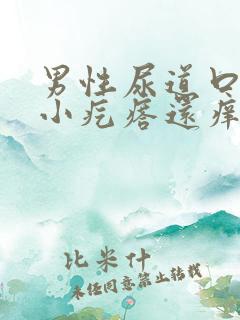 男性尿道口
小疙瘩還癢
比米什
未经同意禁止转载